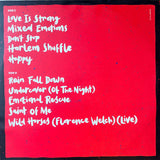 SIDE 3
Love Is Strong
Mixed Emotions
Don't Stop
Harlem Shuffle
Happy
SIDE 4
Rain Fall Down
Undercover (Of The Night)
Emotional Rescue
Saint Of Me
Wild Horses (Florence Welch) (Live)